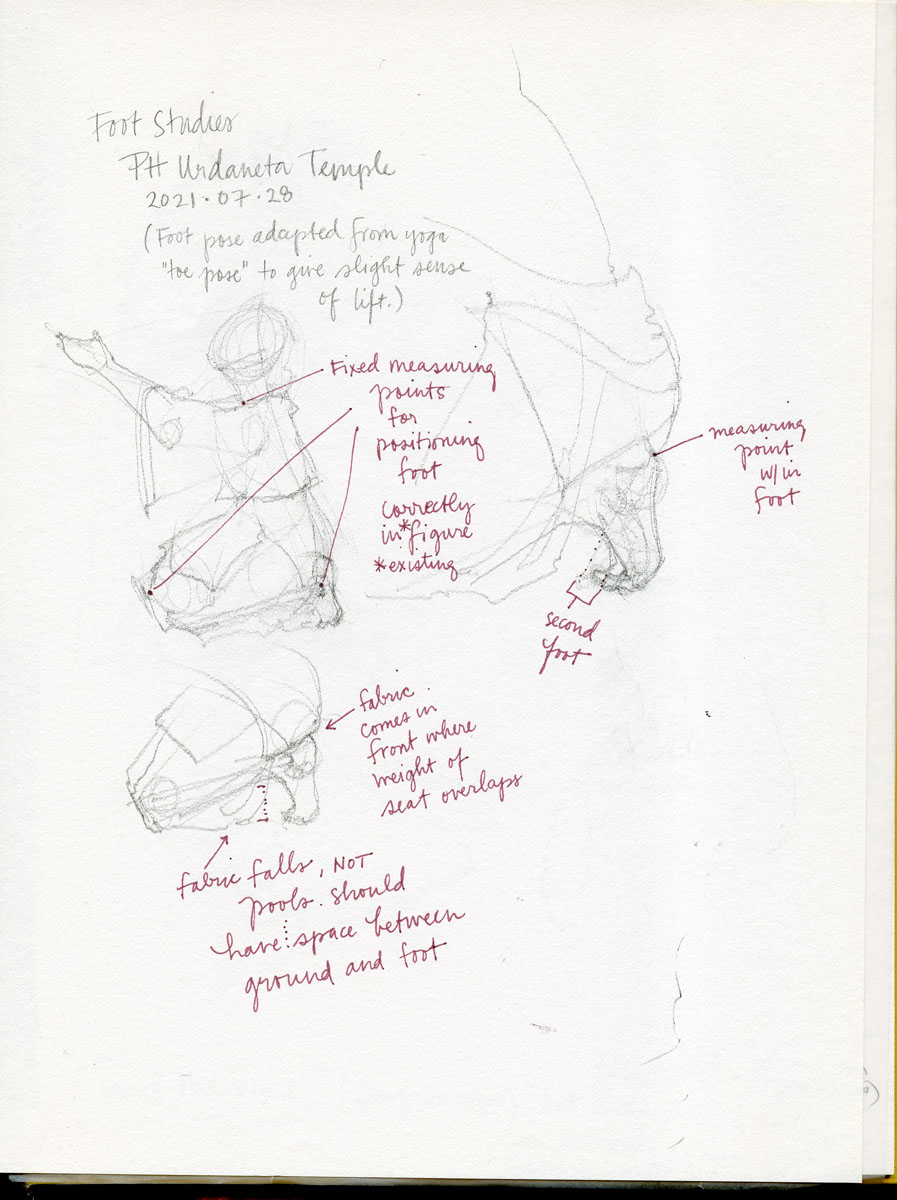 Foot Studies
PH Urdaneta Temple
2021·07·28
(Foot pose adapted from yoga
"toe pose" to give slight sense
of lift.)
Fixed measuring
points
for
positioning
foot
correctly
in *figure
*existing
measuring
point
w/in
foot
second
foot
fabric
comes in
front where
weight of
seat overlaps
fabric falls, NOT
pools. Should
have space between
ground and foot